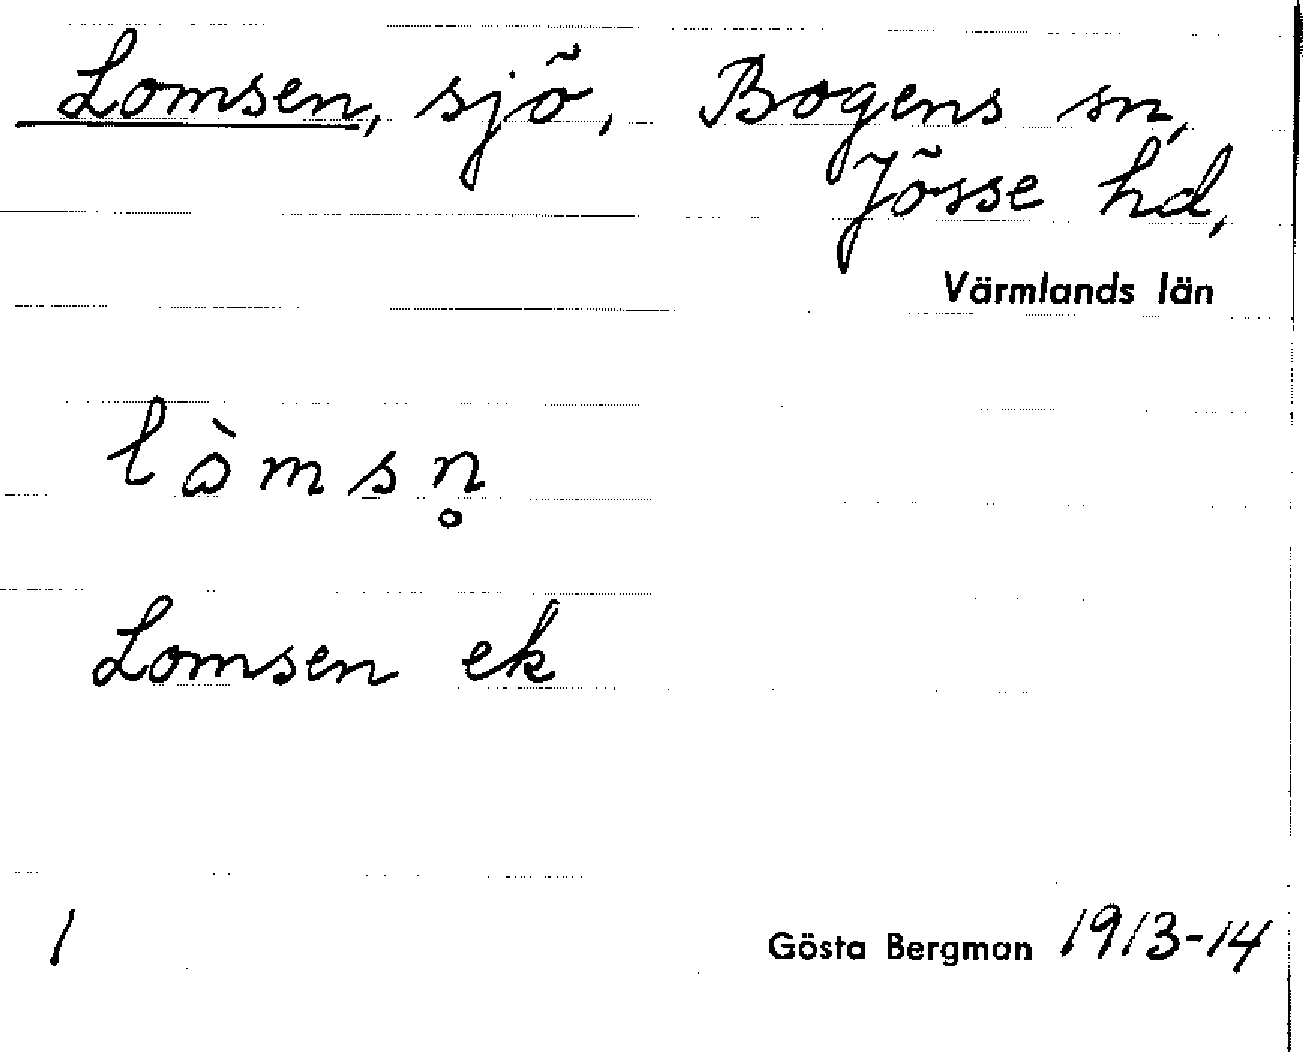 Lomsen, sjö, Bogens sn,
Jösse hd,
Värmlands län
l à m s n̥
Lomsen ek
1 Gösta Bergman 1913-14